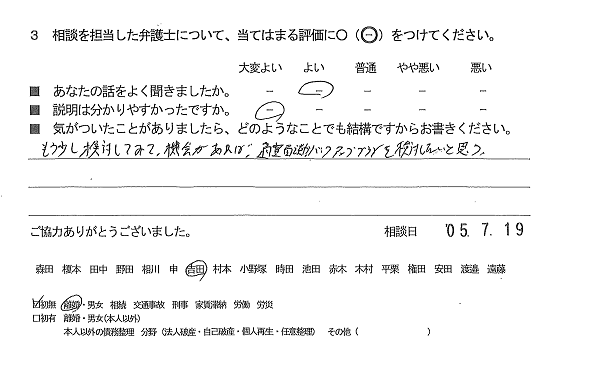 3 相談を担当した弁護士について、当てはまる評価に○(⊖)をつけてください。
大変よい よい 普通 やや悪い 悪い
■ あなたの話をよく聞きましたか。 － － － － －
■ 説明は分かりやすかったですか。 － － － － －
■ 気がついたことがありましたら、どのようなことでも結構ですからお書きください。
もう少し検討してみて、機会があれば、 を検討したいと思う。
ご協力ありがとうございました。 相談日 '05.7.19
森田 榎本 田中 野田 相川 申 吉田 村本 小野塚 時田 池田 赤木 木村 平栗 権田 安田 渡邉 遠藤
☑初無 離婚・男女 相続 交通事故 刑事 家賃滞納 労働 労災
□初有 離婚・男女(本人以外)
本人以外の債務整理 分野(法人破産・自己破産・個人再生・任意整理) その他( )